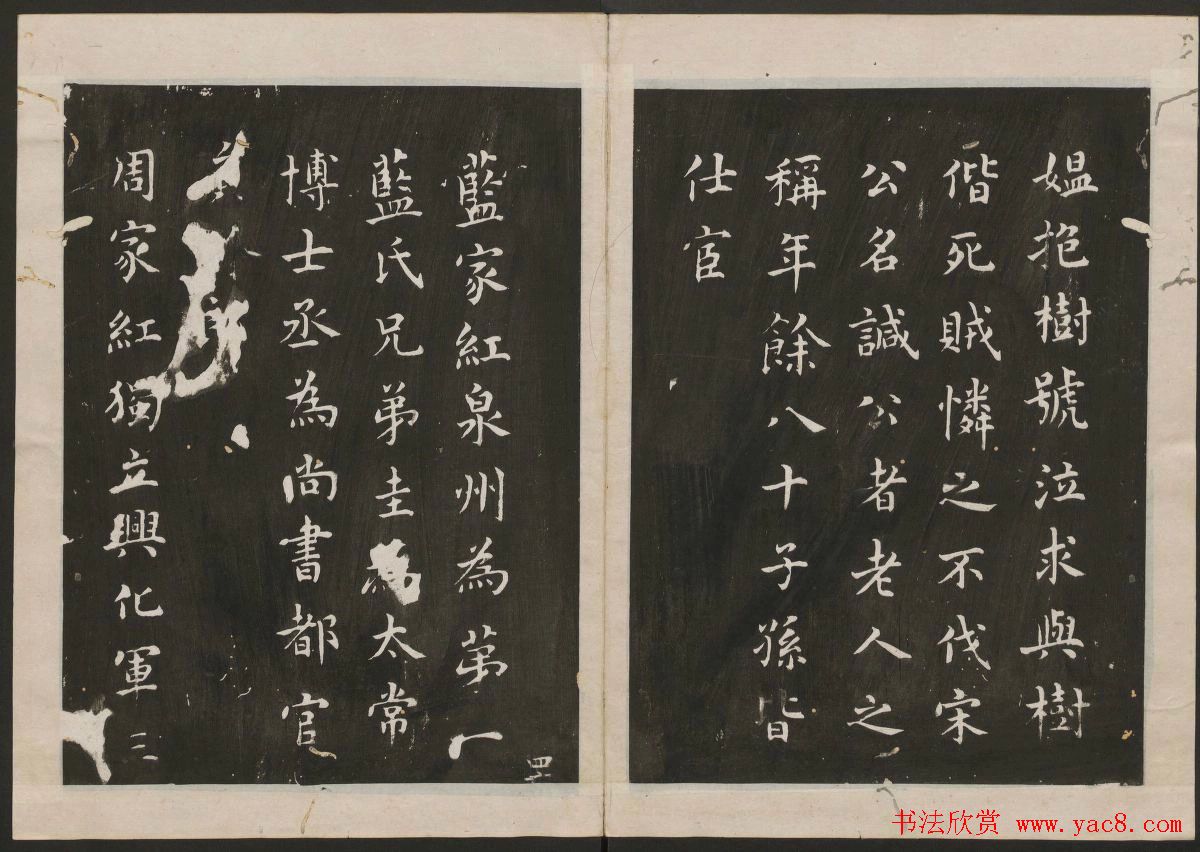 媪抱樹號泣求與樹
偕死賊憐之不伐宋
公名諴公者老人之
稱年餘八十子孫皆
仕宦
藍家紅泉州為第一
藍氏兄弟圭為太常
博士丞為尚書都官
員郎
周家紅獨立興化軍三
四
书法欣赏 www.yac8.com